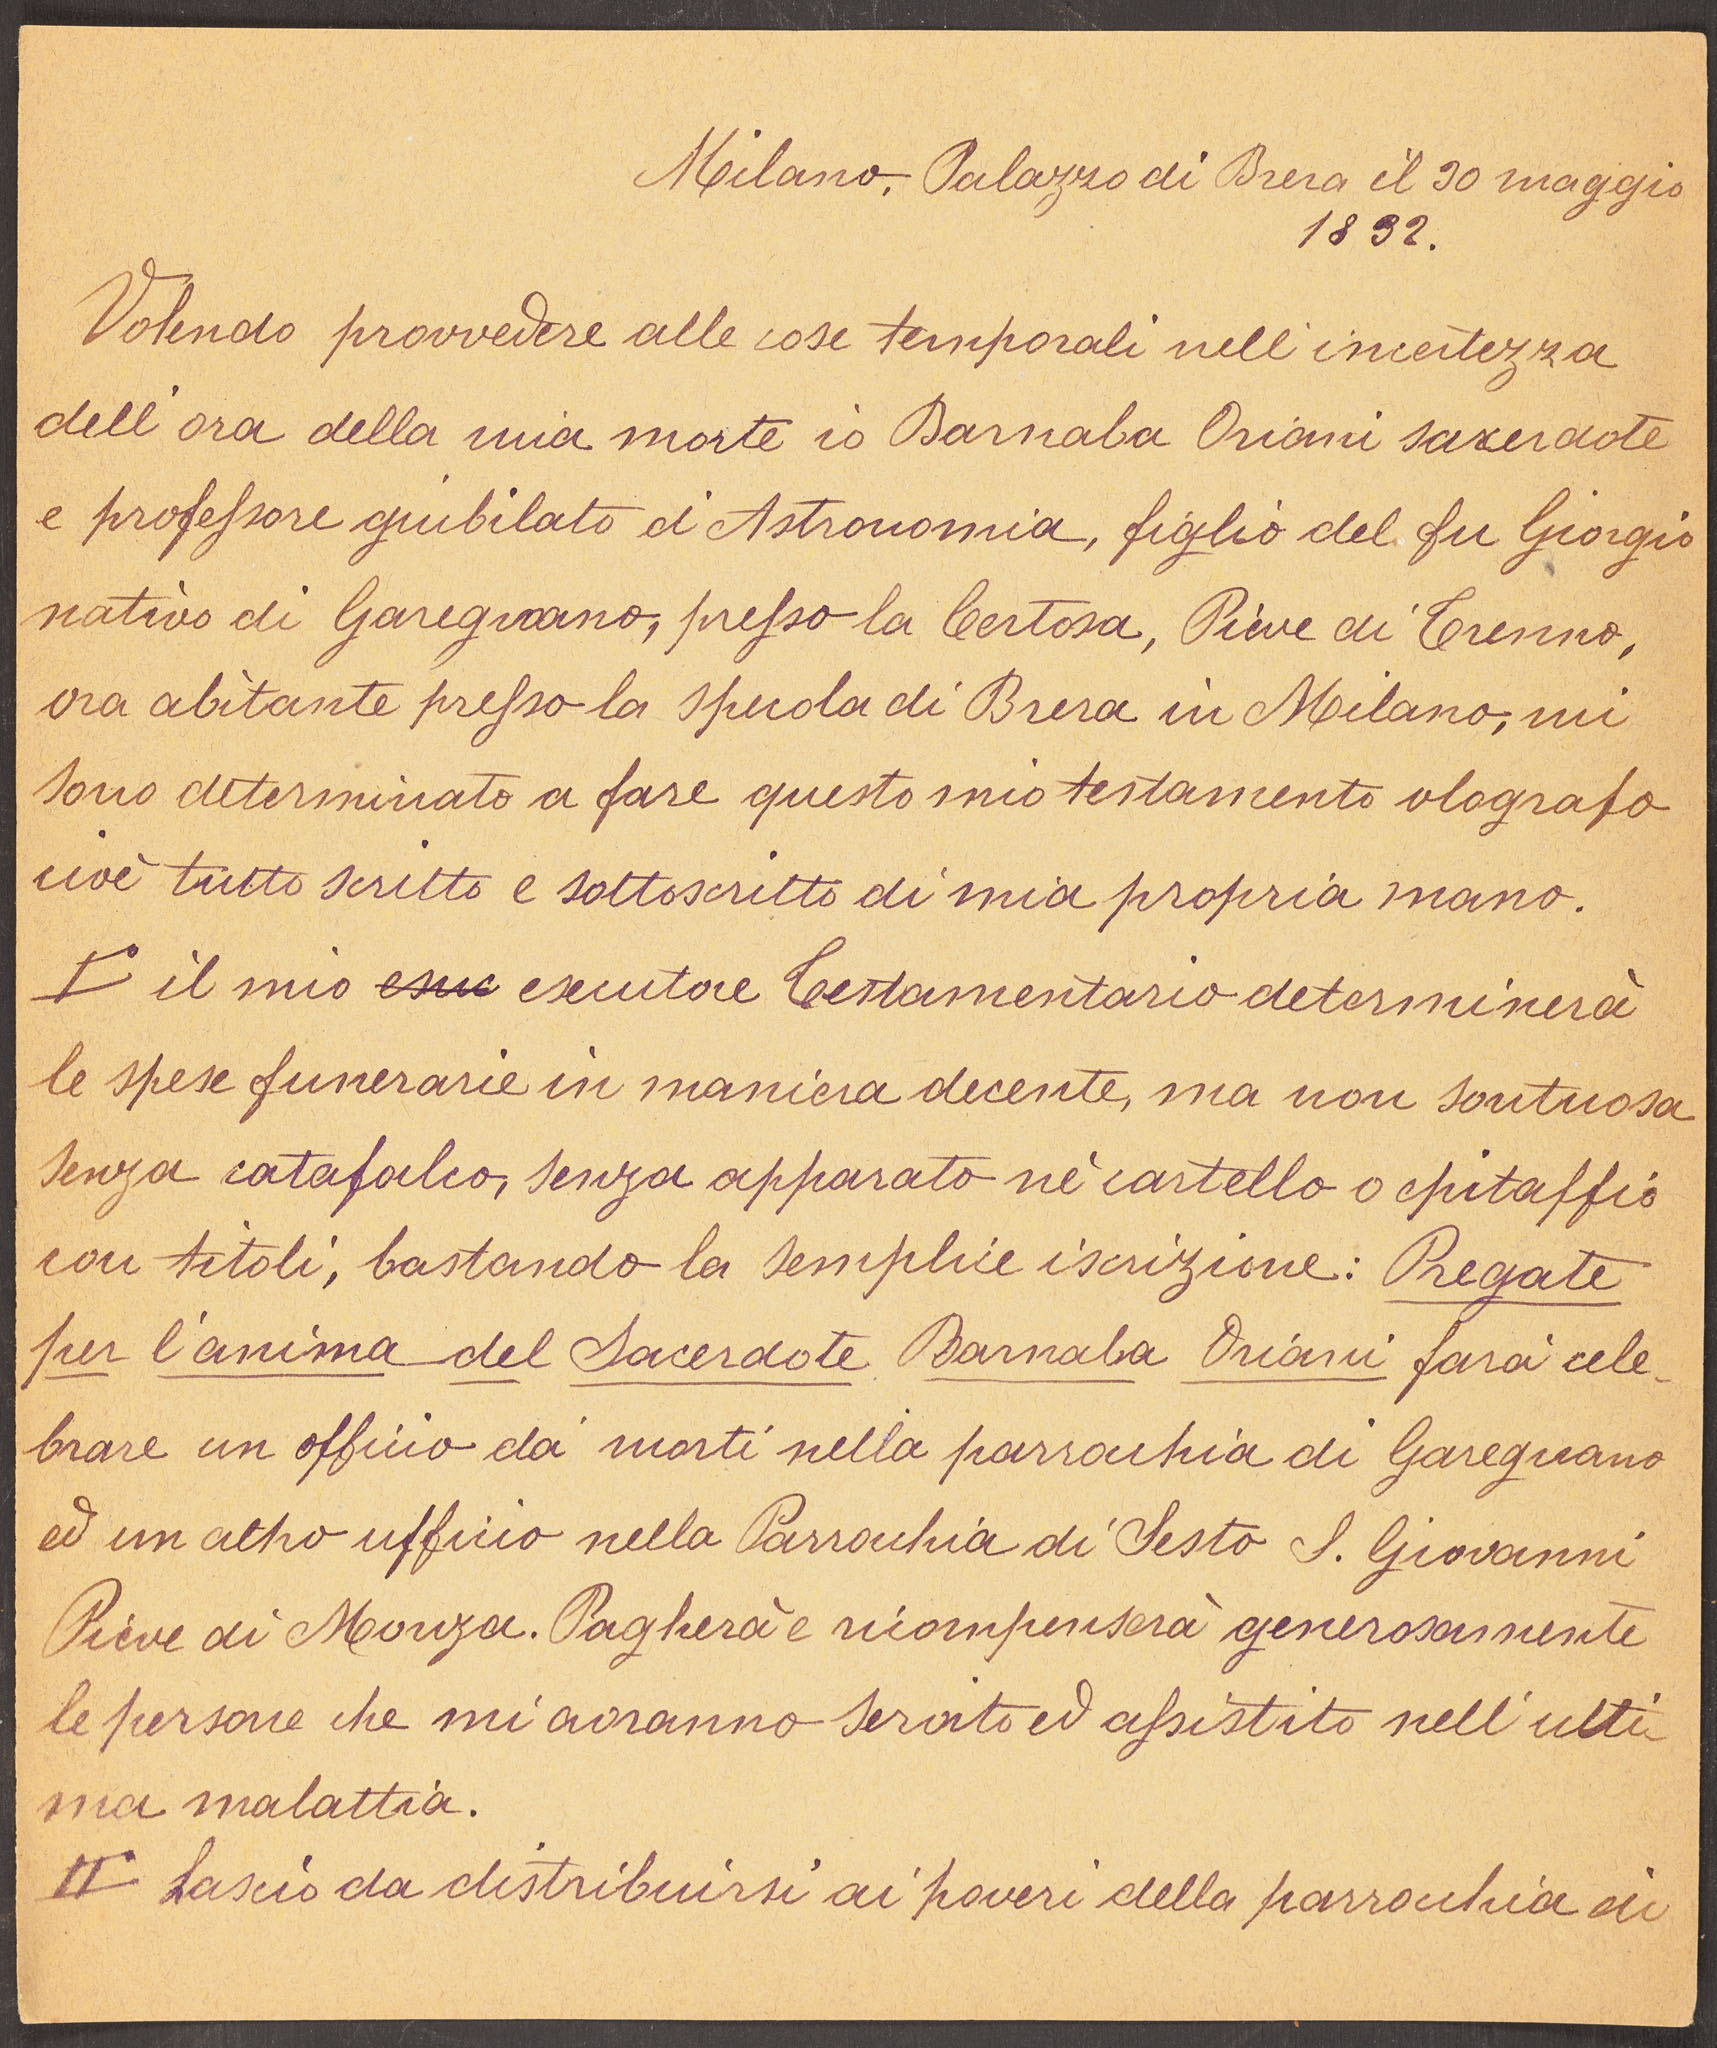 Milano, Palazzo di Brera il 30 maggio
1832.
Volendo provvedere alle cose temporali nell'incertezza
dell'ora della mia morte io Barnaba Oriani sacerdote
e professore giubilato d'Astronomia, figlio del fu Giorgio
nativo di Garegnano, presso la Certosa, Pieve di Trenno,
ora abitante presso la specola di Brera in Milano, mi
sono determinato a fare questo mio testamento olografo
cioè tutto scritto e sottoscritto di mia propria mano.
I° il mio esecutore Testamentario determinerà
le spese funerarie in maniera decente, ma non sontuosa
senza catafalco, senza apparato nè cartello o epitaffio
con titoli, bastando la semplice iscrizione: Pregate
per l'anima del Sacerdote Barnaba Oriani farà cele-
brare un officio da' morti nella parrochia di Garegnano
ed un altro ufficio nella Parrochia di Sesto S. Giovanni
Pieve di Monza. Pagherà e ricompenserà generosamente
le persone che mi avranno servito ed assistito nell'ulti-
ma malattia.
II° Lascio da distribuirsi ai poveri della parrochia di